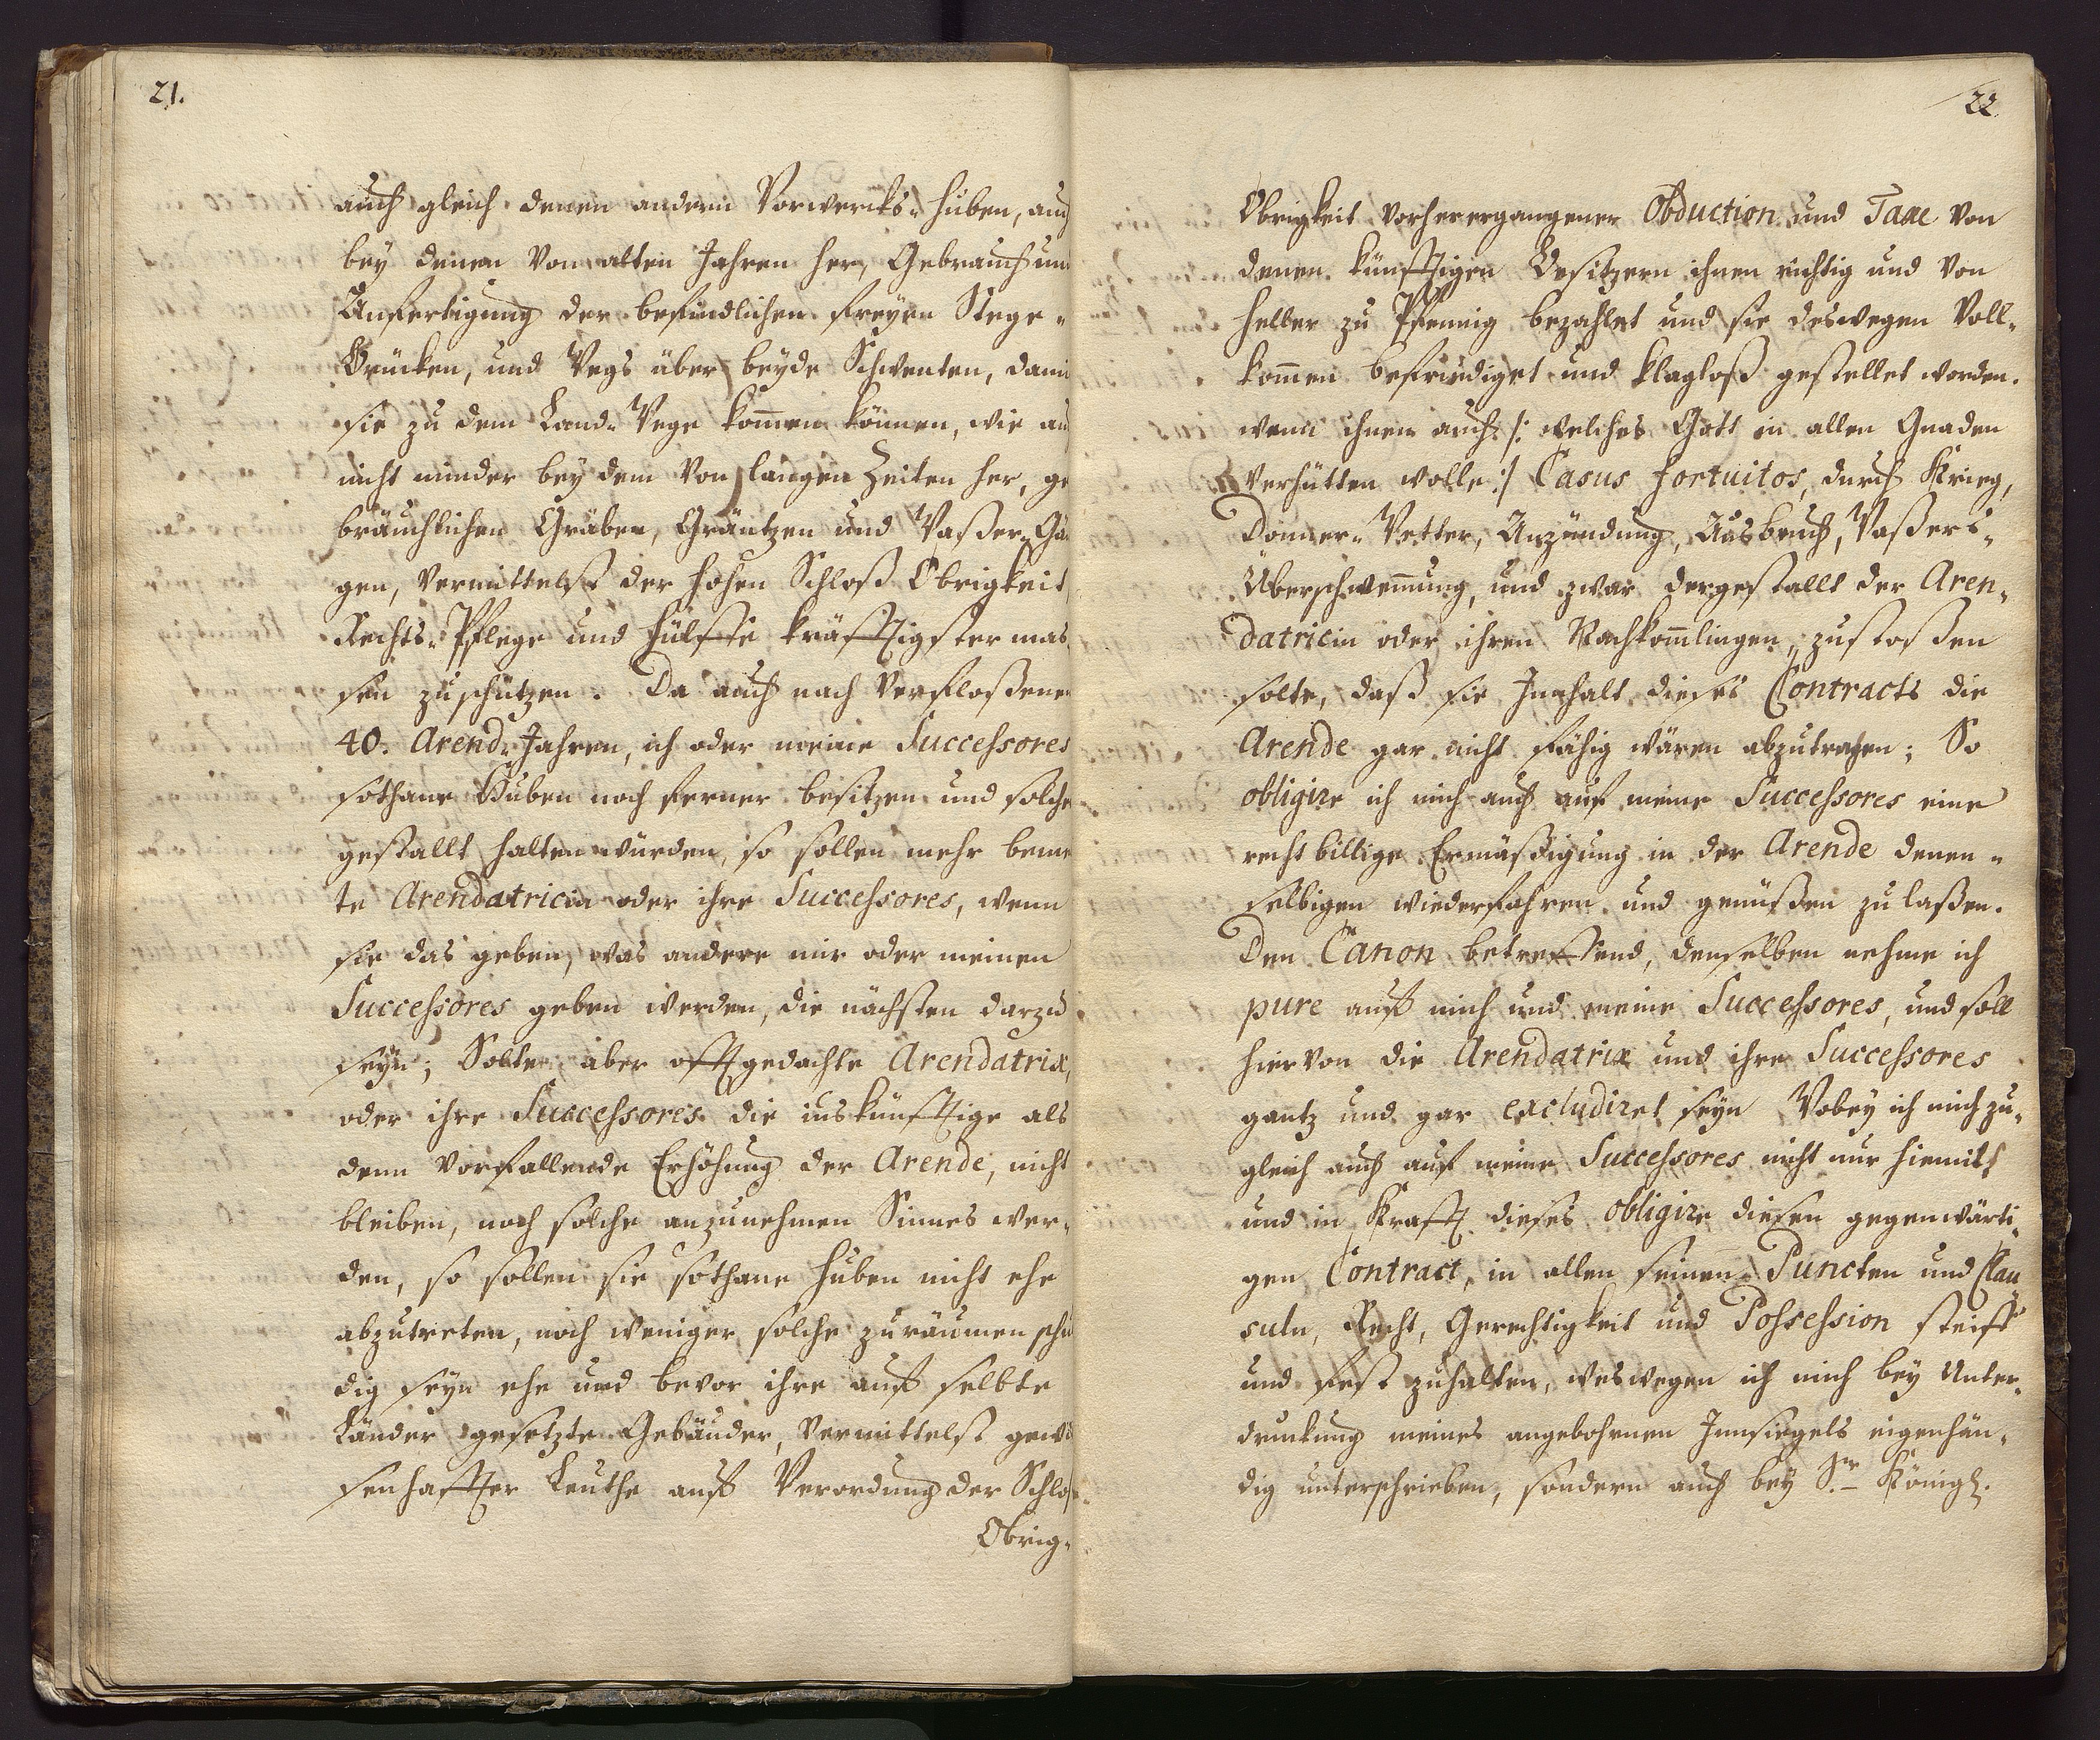 21.
auch gleich denen andern Vorwercks- Huben, auch
bey denen von alten Jahren her, Gebrauch und
Anfertigung der befindlichen freyen Stege-
Brücken, und Wegs über beyde Schwenten, dami
sie zu dem Land- Wege kom̄en können, wie au
nicht minder bey dem von langen Zeiten her, ge
bräuchlichen Gräben, Gräntzen und Waßer- Gä
gen, vermittelst der hohen Schloß Obrigkeit,
Rechts- Pflege und Hülffe kräfftigster mas
sen zu schützen. Da auch nach verfloßenen
40. Arend- Jahren, ich oder meine Successores
sothane Huben noch ferner besitzen und solche
gestallt halten würden, so sollen mehr bemel
te Arendatricin oder ihre Successores, wenn
sie das geben, was andere mir oder meinen
Successores geben werden, die nächsten darzu
seyn; Solte aber offtgedachte Arendatrix,
oder ihre Successores die inskünfftige als
denn vorfallende Erhöhung der Arende, nicht
bleiben, noch solche anzunehmen Sinnes wer-
den, so sollen sie sothane Huben nicht ehe
abzutreten, noch weniger solche zu räumen schu
dig seyn ehe und bevor ihre auff selbte
Länder gesetzte Gebäuder, vermittelst gewi
senhaffter Leuthe auff Verordung der Schlos
Obrig-
22
Obrigkeit vorherergangener Obduction und Taxe von
denen künfftigen Besitzern ihnen richtig und von
Heller zu Pfennig bezahlet und sie deswegen voll-
kom̄en befriediget und klagloß gestellet worden.
wenn ihnen auch /: welches Gott in allen Gnaden
verhütten wolle :/ Casus fortuitos, durch Krieg,
Donner- Wetter, Anzündung, Ausbruch, Waßers-
Überschwem̄ung, und zwar dergestallt der Aren-
datricin oder ihren Nachkom̄lingen, zustoßen
solte, daß sie Innhalt dieses Contracts die
Arende gar nicht fähig wären abzutragen; So
obligire ich mich auch auf meine Successores eine
recht billige Ermäßigung in der Arende denen-
selbigen wiederfahren und genüßen zu laßen.
Den Canon betreffend, denselben nehme ich
pure auff mich und meine Successores, und soll
hiervon die Arendatrix und ihre Successores
gantz und gar excludiret seyn Wobey ich mich zu-
gleich auch auf meine Successores nicht nur hiemit
und in Krafft dieses obligire diesen gegenwärti-
gen Contract, in allen seinen Puncten und Clau
suln, Recht, Gerechtigkeit und Possession steiff
und fest zuhalten, weswegen ich mich bey Unter-
druckung meines angebohrnen Innsiegels eigenhän-
dig unterschrieben, sondern auch bey Sr. Königl.